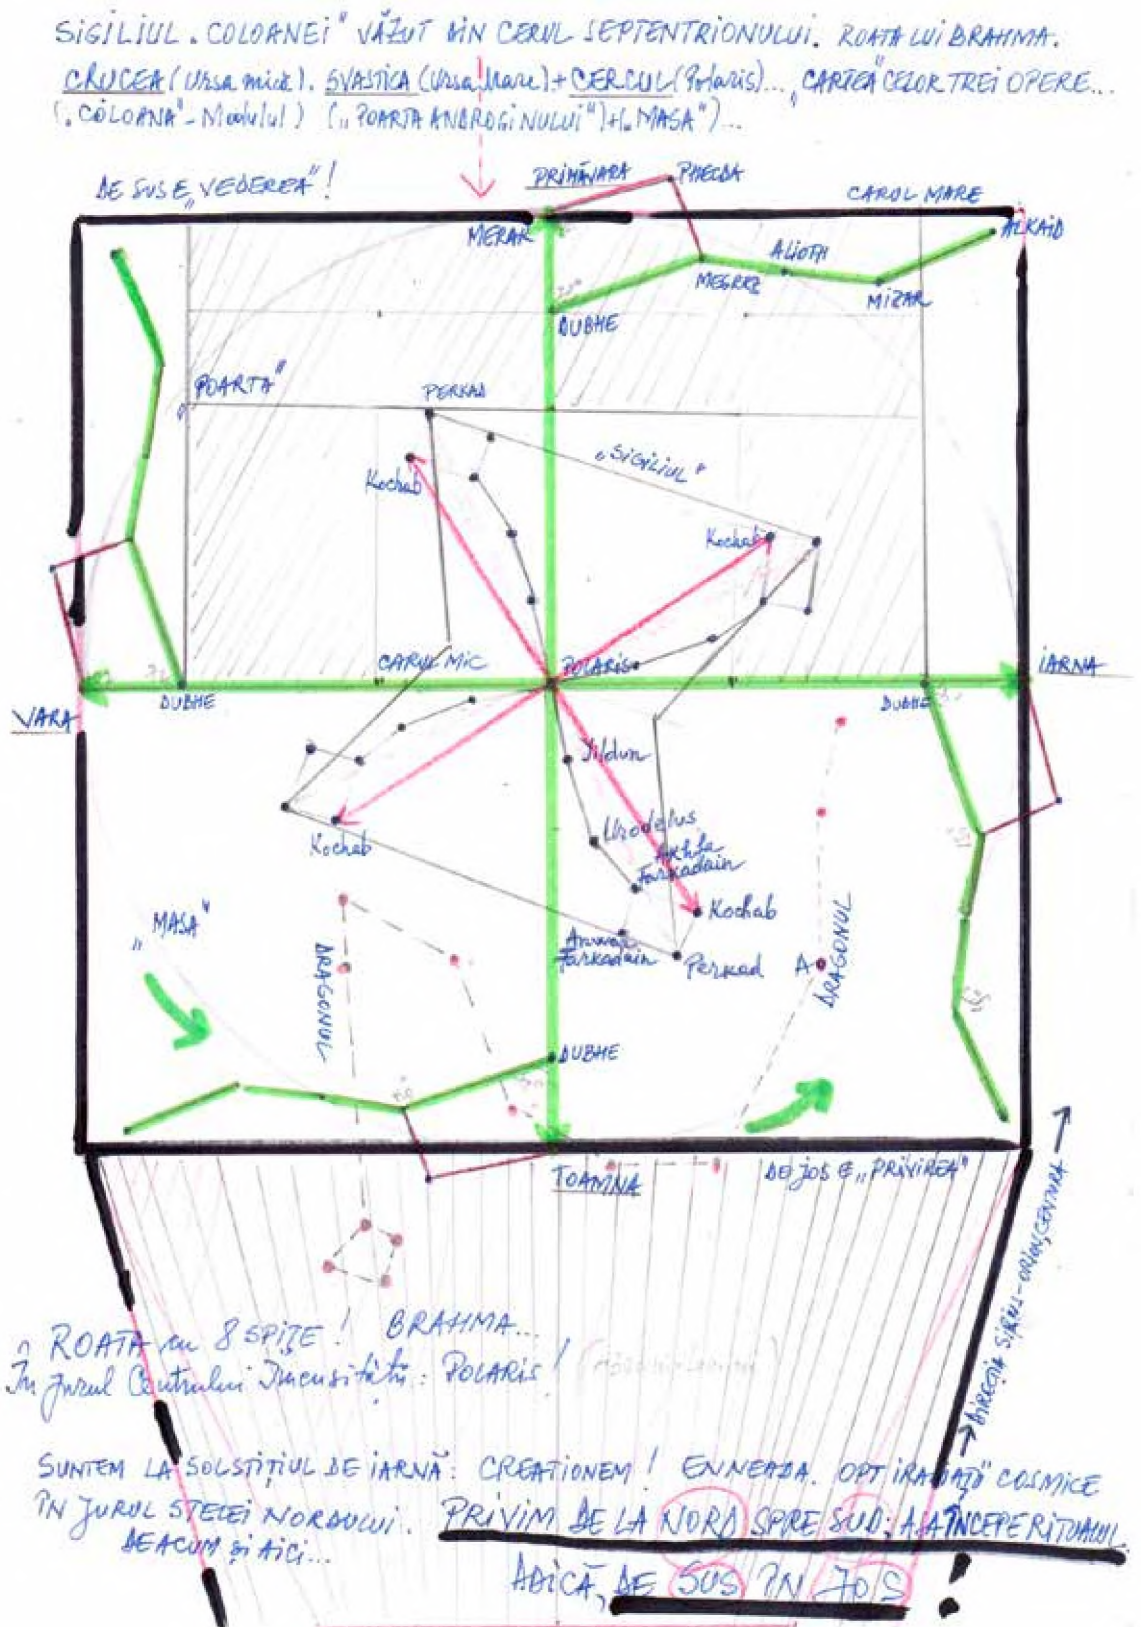 SIGILIUL „COLOANEI" VĂZUT DIN CERUL SEPTENTRIONULUI. ROATA LUI BRAHMA.
CRUCEA (Ursa mică). SVASTICA (Ursa Mare) + CERCUL (Polaris)... „CARTEA" CELOR TREI OPERE...
(„COLOANA" - Modulul) („POARTA ANDROGINULUI") + („MASA")...
DE SUS E „VEDEREA"!
PRIMĂVARA
PHECDA
CAROL MARE
MERAK
ALKAID
ALIOTH
MEGREZ
MIZAR
DUBHE
„POARTA"
PERKAD
„SIGILIUL"
Kochab
Kochab
CARUL MIC
POLARIS
IARNA
DUBHE
DUBHE
VARA
Yildun
Urodelus
Akhfa
Farkadain
Kochab
Kochab
„MASA"
DRAGONUL
Anwar
Farkadain
Perkad
A
DRAGONUL
DUBHE
TOAMNA
DE JOS E „PRIVIREA"
DIRECȚIA SIRIUS-ORION, CENTURA
ROATA cu 8 SPIȚE! BRAHMA...
În jurul Centrului : POLARIS!
SUNTEM LA SOLSTIȚIUL DE IARNĂ: CREATIONEM! ENNEADA. OPT „IRADIAȚII" COSMICE
ÎN JURUL STELEI NORDULUI. PRIVIM DE LA NORD SPRE SUD; AȘA ÎNCEPE RITUALUL.
DE ACUM ȘI AICI...
ADICĂ, DE SUS ÎN JOS!